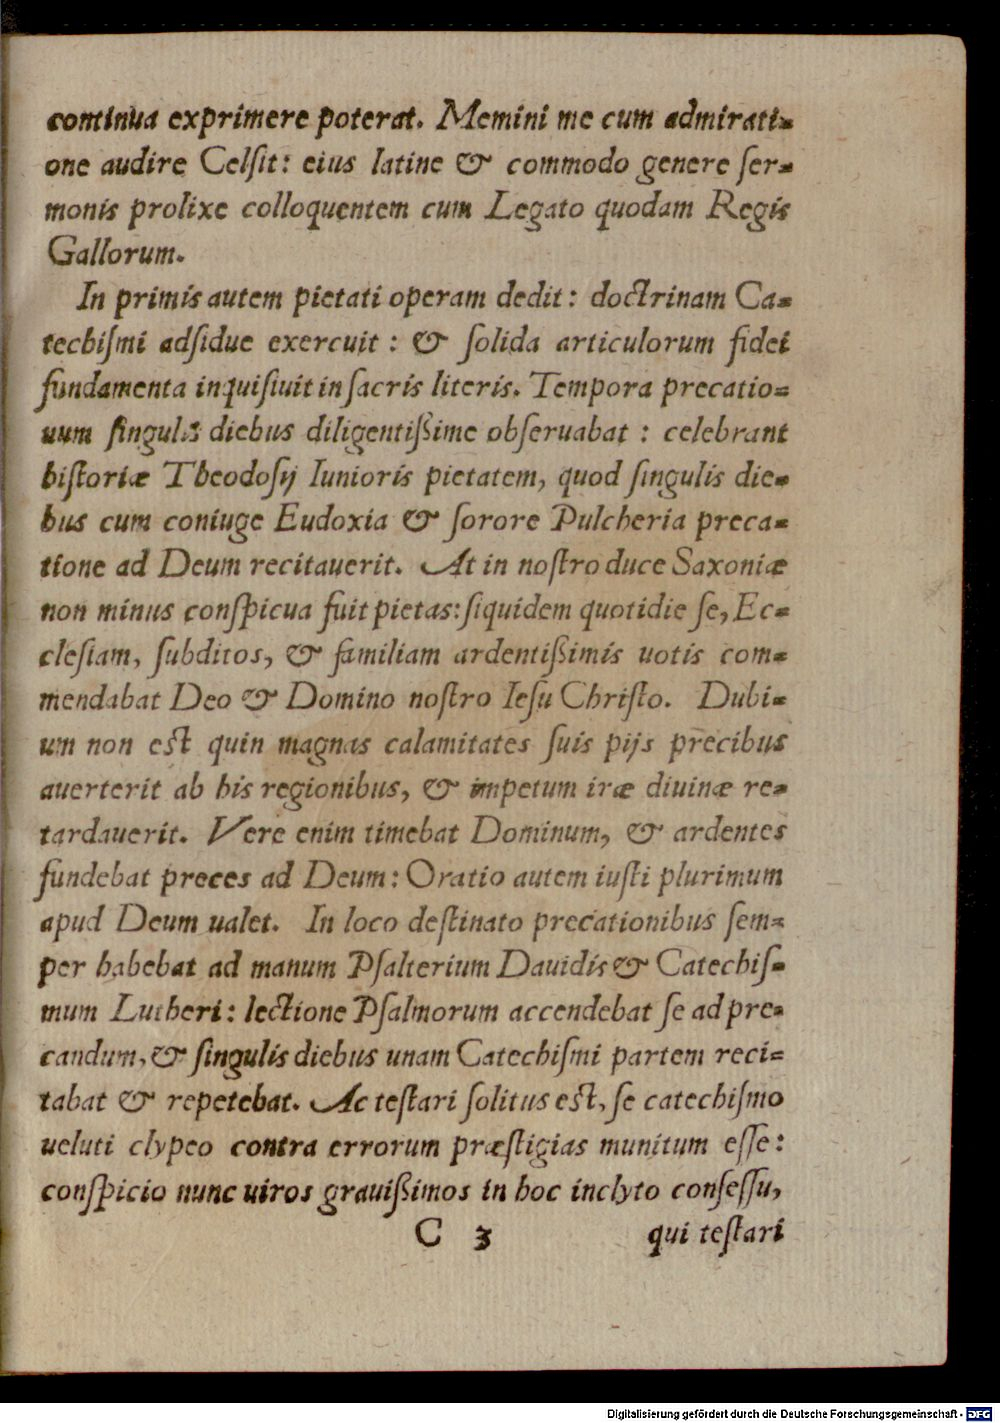 continua exprimere poterat. Memini me cum admirati-
one audire Celſit: eius latine & commodo genere ſer-
monis prolixe colloquentem cum Legato quodam Regis
Gallorum.
In primis autem pietati operam dedit: doctrinam Ca-
techiſmi adſidue exercuit : & ſolida articulorum fidei
fundamenta inquiſiuit in ſacris literis. Tempora precatio-
uum ſingulis diebus diligentißime obſeruabat : celebrant
hiſtoriæ Theodoſij Iunioris pietatem, quod ſingulis die-
bus cum coniuge Eudoxia & ſorore Pulcheria preca-
tione ad Deum recitauerit. At in noſtro duce Saxoniæ
non minus conſpicua fuit pietas: ſiquidem quotidie ſe, Ec-
cleſiam, ſubditos, & familiam ardentißimis uotis com-
mendabat Deo & Domino noſtro Ieſu Chriſto. Dubi-
um non eſt quin magnas calamitates ſuis pijs precibus
auerterit ab his regionibus, & impetum iræ diuinæ re-
tardauerit. Vere enim timebat Dominum, & ardentes
fundebat preces ad Deum: Oratio autem iuſti plurimum
apud Deum ualet. In loco deſtinato precationibus ſem-
per habebat ad manum Pſalterium Dauidis & Catechiſ-
mum Lutheri: lectione Pſalmorum accendebat ſe ad pre-
candum, & ſingulis diebus unam Catechiſmi partem reci-
tabat & repetebat. Ac teſtari ſolitus eſt, ſe catechiſmo
ueluti clypeo contra errorum præſtigias munitum eſſe:
conſpicio nunc uiros grauißimos in hoc inclyto conſeſſu,
C 3 qui teſtari
Digitalisierung gefördert durch die Deutsche Forschungsgemeinschaft - DFG